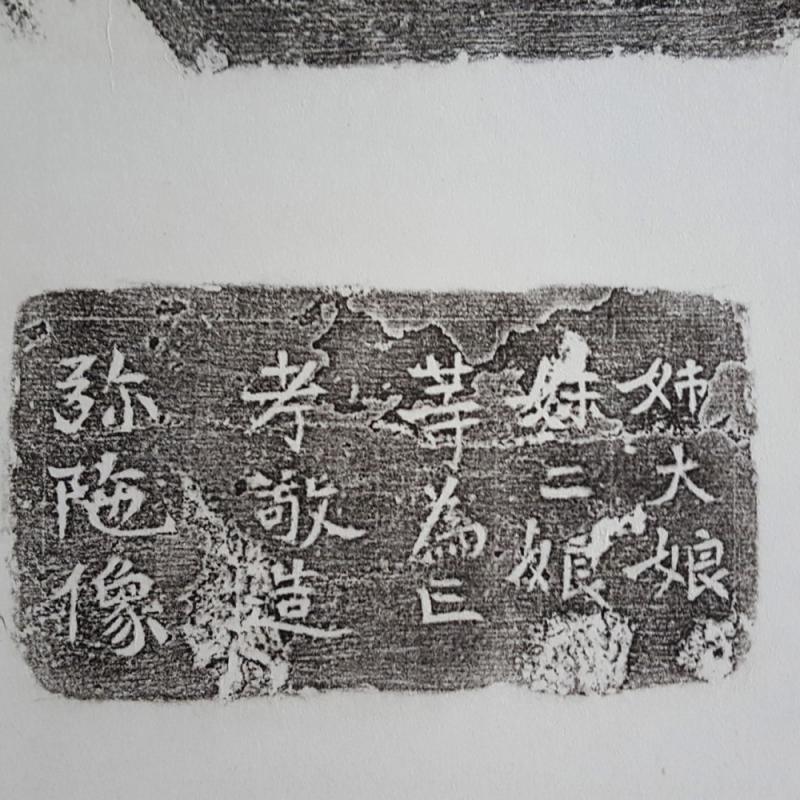 姉大娘
妹二娘
等為亡
孝敬造
弥陁像